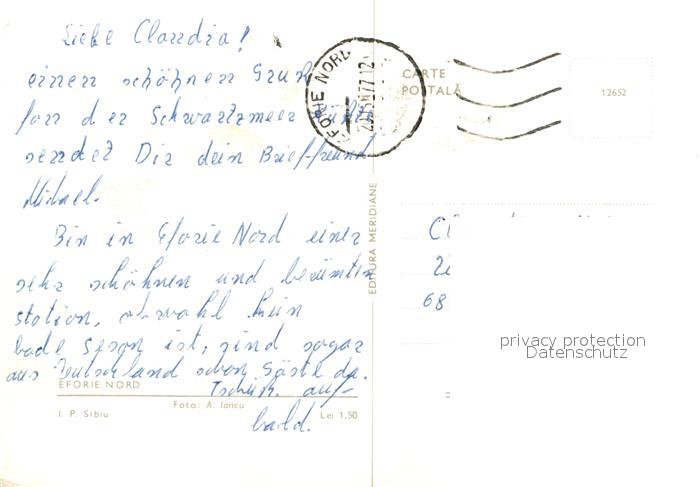 Liebe Claudia!
einen schöhnen Gruß
forn der Schwartzmeer
sendet Dir dein Brieffreund
Mihael.
Bin in Eforie Nord einer
sehr schöhnen und berümten
station, obwohl kein
bade seson ist, sind sogar
aus Deutschland schon Gäste da.
Tschüß. auf-
bald.
EFORIE NORD
Foto: A. Iancu
I. P. Sibiu
Lei 1,50
EDITURA MERIDIANE
EFORIE NORD
CARTE
POSTALĂ
12652
Cl
68
privacy protection
Datenschutz